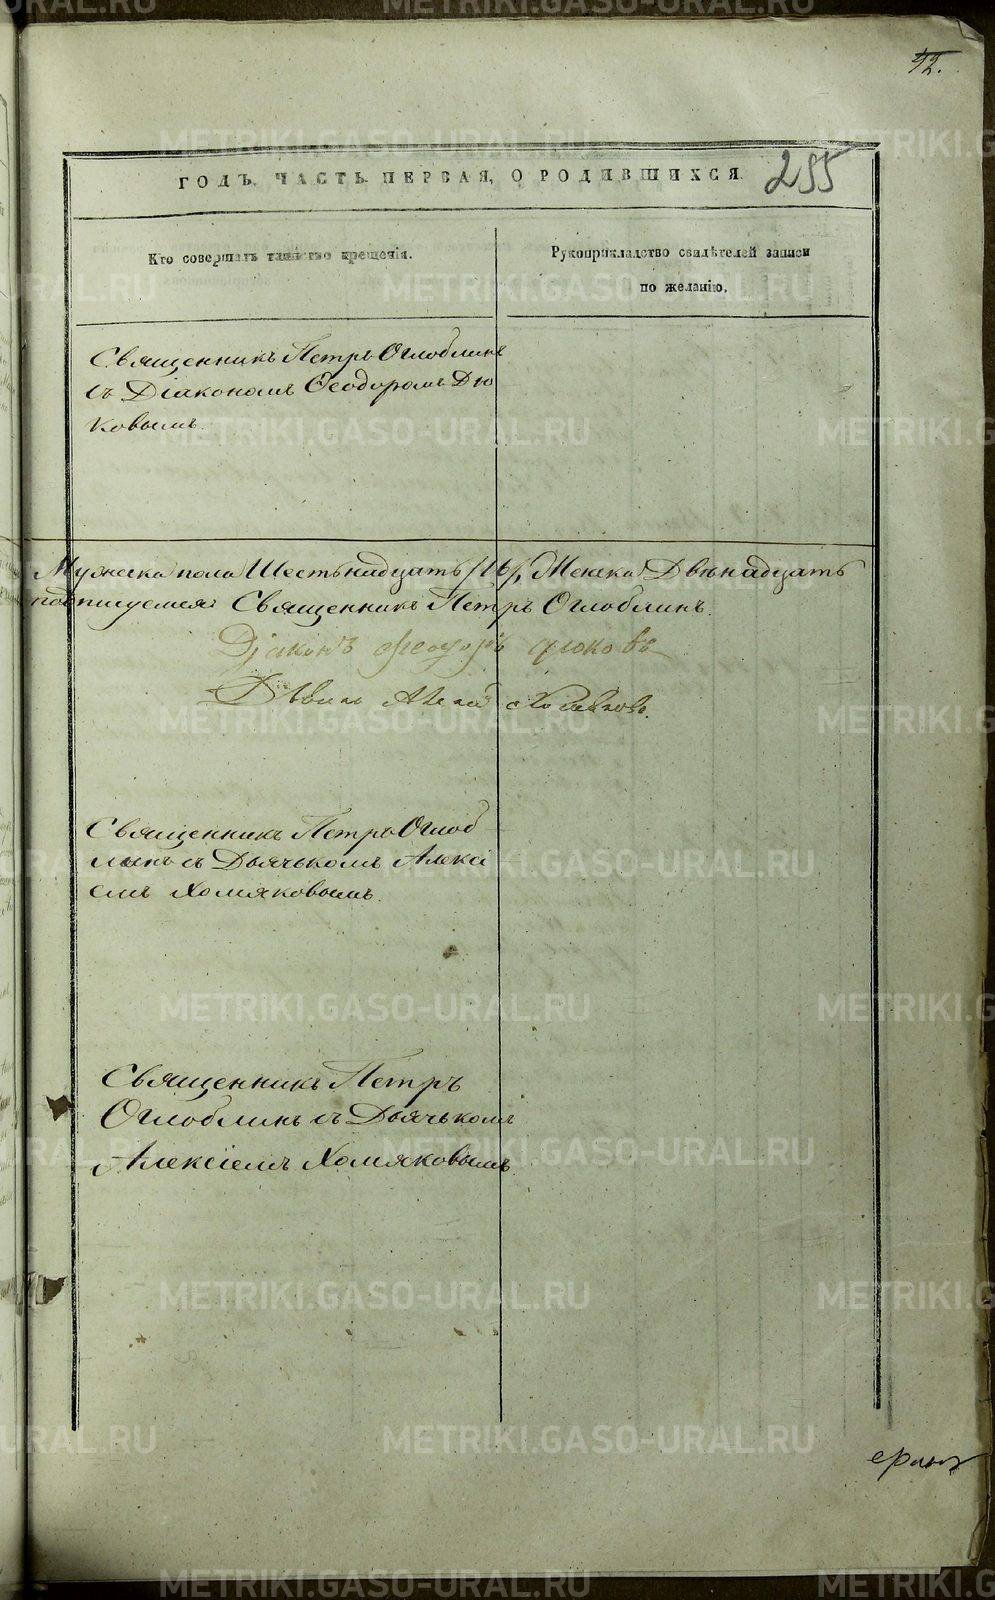 42.
ГОДЪ. ЧАСТЬ ПЕРВАЯ, О РОДИВШИХСЯ.
255
Кто совершалъ таинство крещенія.
Рукоприкладство свидѣтелей записи
по желанію.
Священникъ Петръ Оглоблинъ
съ Діакономъ Ѳеодоромъ Дю
ковымъ.
Мужеска пола Шестьнадцать /16/, Женска Двѣнадцать
подписуемся: Священникъ Петръ Оглоблинъ.
Діаконъ Ѳеодоръ Дюковъ
Алексѣй Хомяковъ.
Священникъ Петръ Оглоб
линъ съ Дьячькомъ Алексі
емъ Хомяковымъ.
Священникъ Петръ
Оглоблинъ съ Дьячькомъ
Алексіемъ Хомяковымъ
METRIKI.GASO-URAL.RU